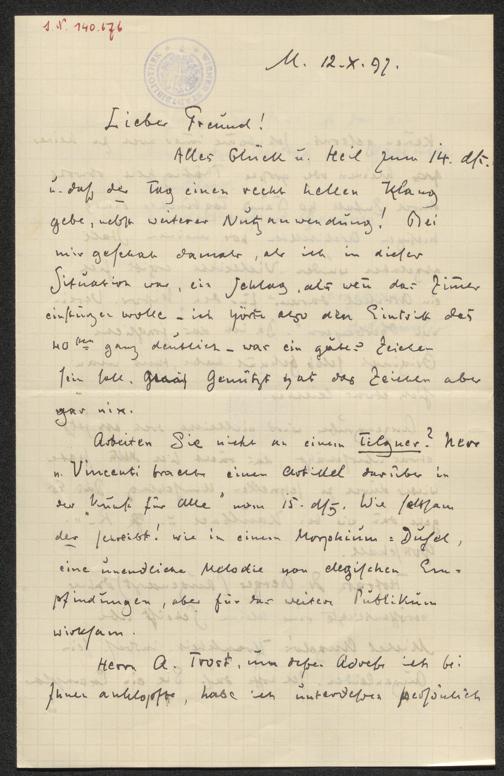 J. N. 140.676
WIENER STADTBIBLIOTHEK
M. 12-X.97.
Lieber Freund!
Alles Glück u. Heil zum 14. dſs.
u. daſs der Tag einen recht hellen Klang
gebe, nebst weiterer Nutzanwendung! Bei
mir geschah damals, als ich in dieser
Situation war, ein Schlag, als wen̄ das Zimer
einstürzen wolle – ich hörte also den Eintritt des
40sten ganz deutlich – was ein gutes Zeichen
sein soll. Genützt hat das Zeichen aber
gar nix.
Arbeiten Sie nicht an einem Tilgner? Herr
v. Vincenti brachte einen Artikel darüber in
der „Kunst für Alle" vom 15. dſs. Wie seltsam
der schreibt! wie in einem Morphium = Dusel,
eine unendliche Melodie von elegischen Em-
pfindungen, aber für das weitere Publikum
wirksam.
Herrn A. Trost, um deſsen Adreſse ich bei
Ihnen anklopfte, habe ich unterdessen persönlich